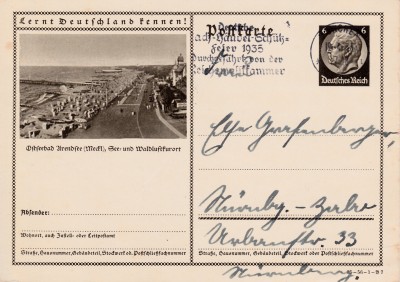 Lernt Deutschland kennen!
Postkarte
Feier 1935
Durchgeführt von der
6 6
Deutsches Reich
Ostseebad Arendsee (Meckl), See- und Waldluftkurort
Absender:
Wohnort, auch Zustell- oder Leitpostamt
Straße, Hausnummer, Gebäudeteil, Stockwerk od. Postschließfachnummer
Else Grafenberger,
Nürnbg.-
Urbanstr. 33
Straße, Hausnummer, Gebäudeteil, Stockwerk oder Postschließfachnummer
Nürnberg.